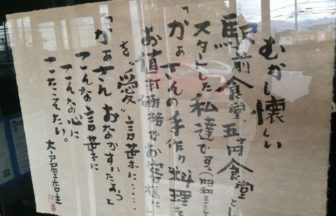 むかし懐しい
駅前食堂五十円食堂と
スタートした私達です。(昭和三十
「かあさんの手作り料理を
お値打価格でお客様に
を、愛言葉に……
「かあさんおなかすいたよう」と
こんな言葉に
こんな心に
こたえたい。